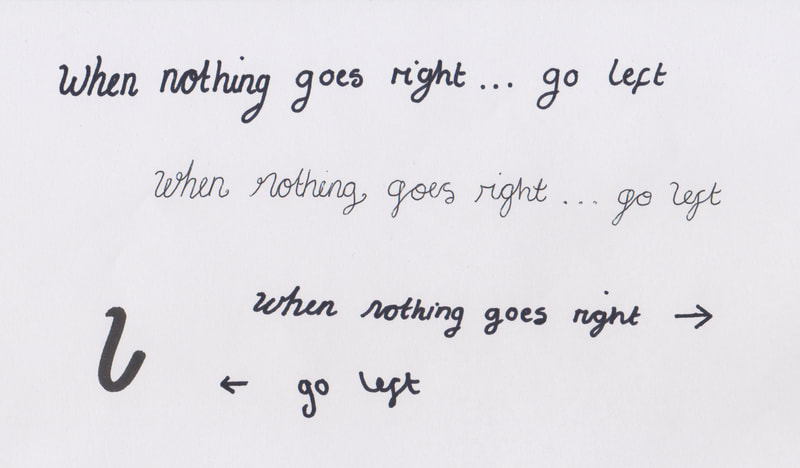 When nothing goes right... go left
When nothing goes right... go left
when nothing goes right →
l
← go left